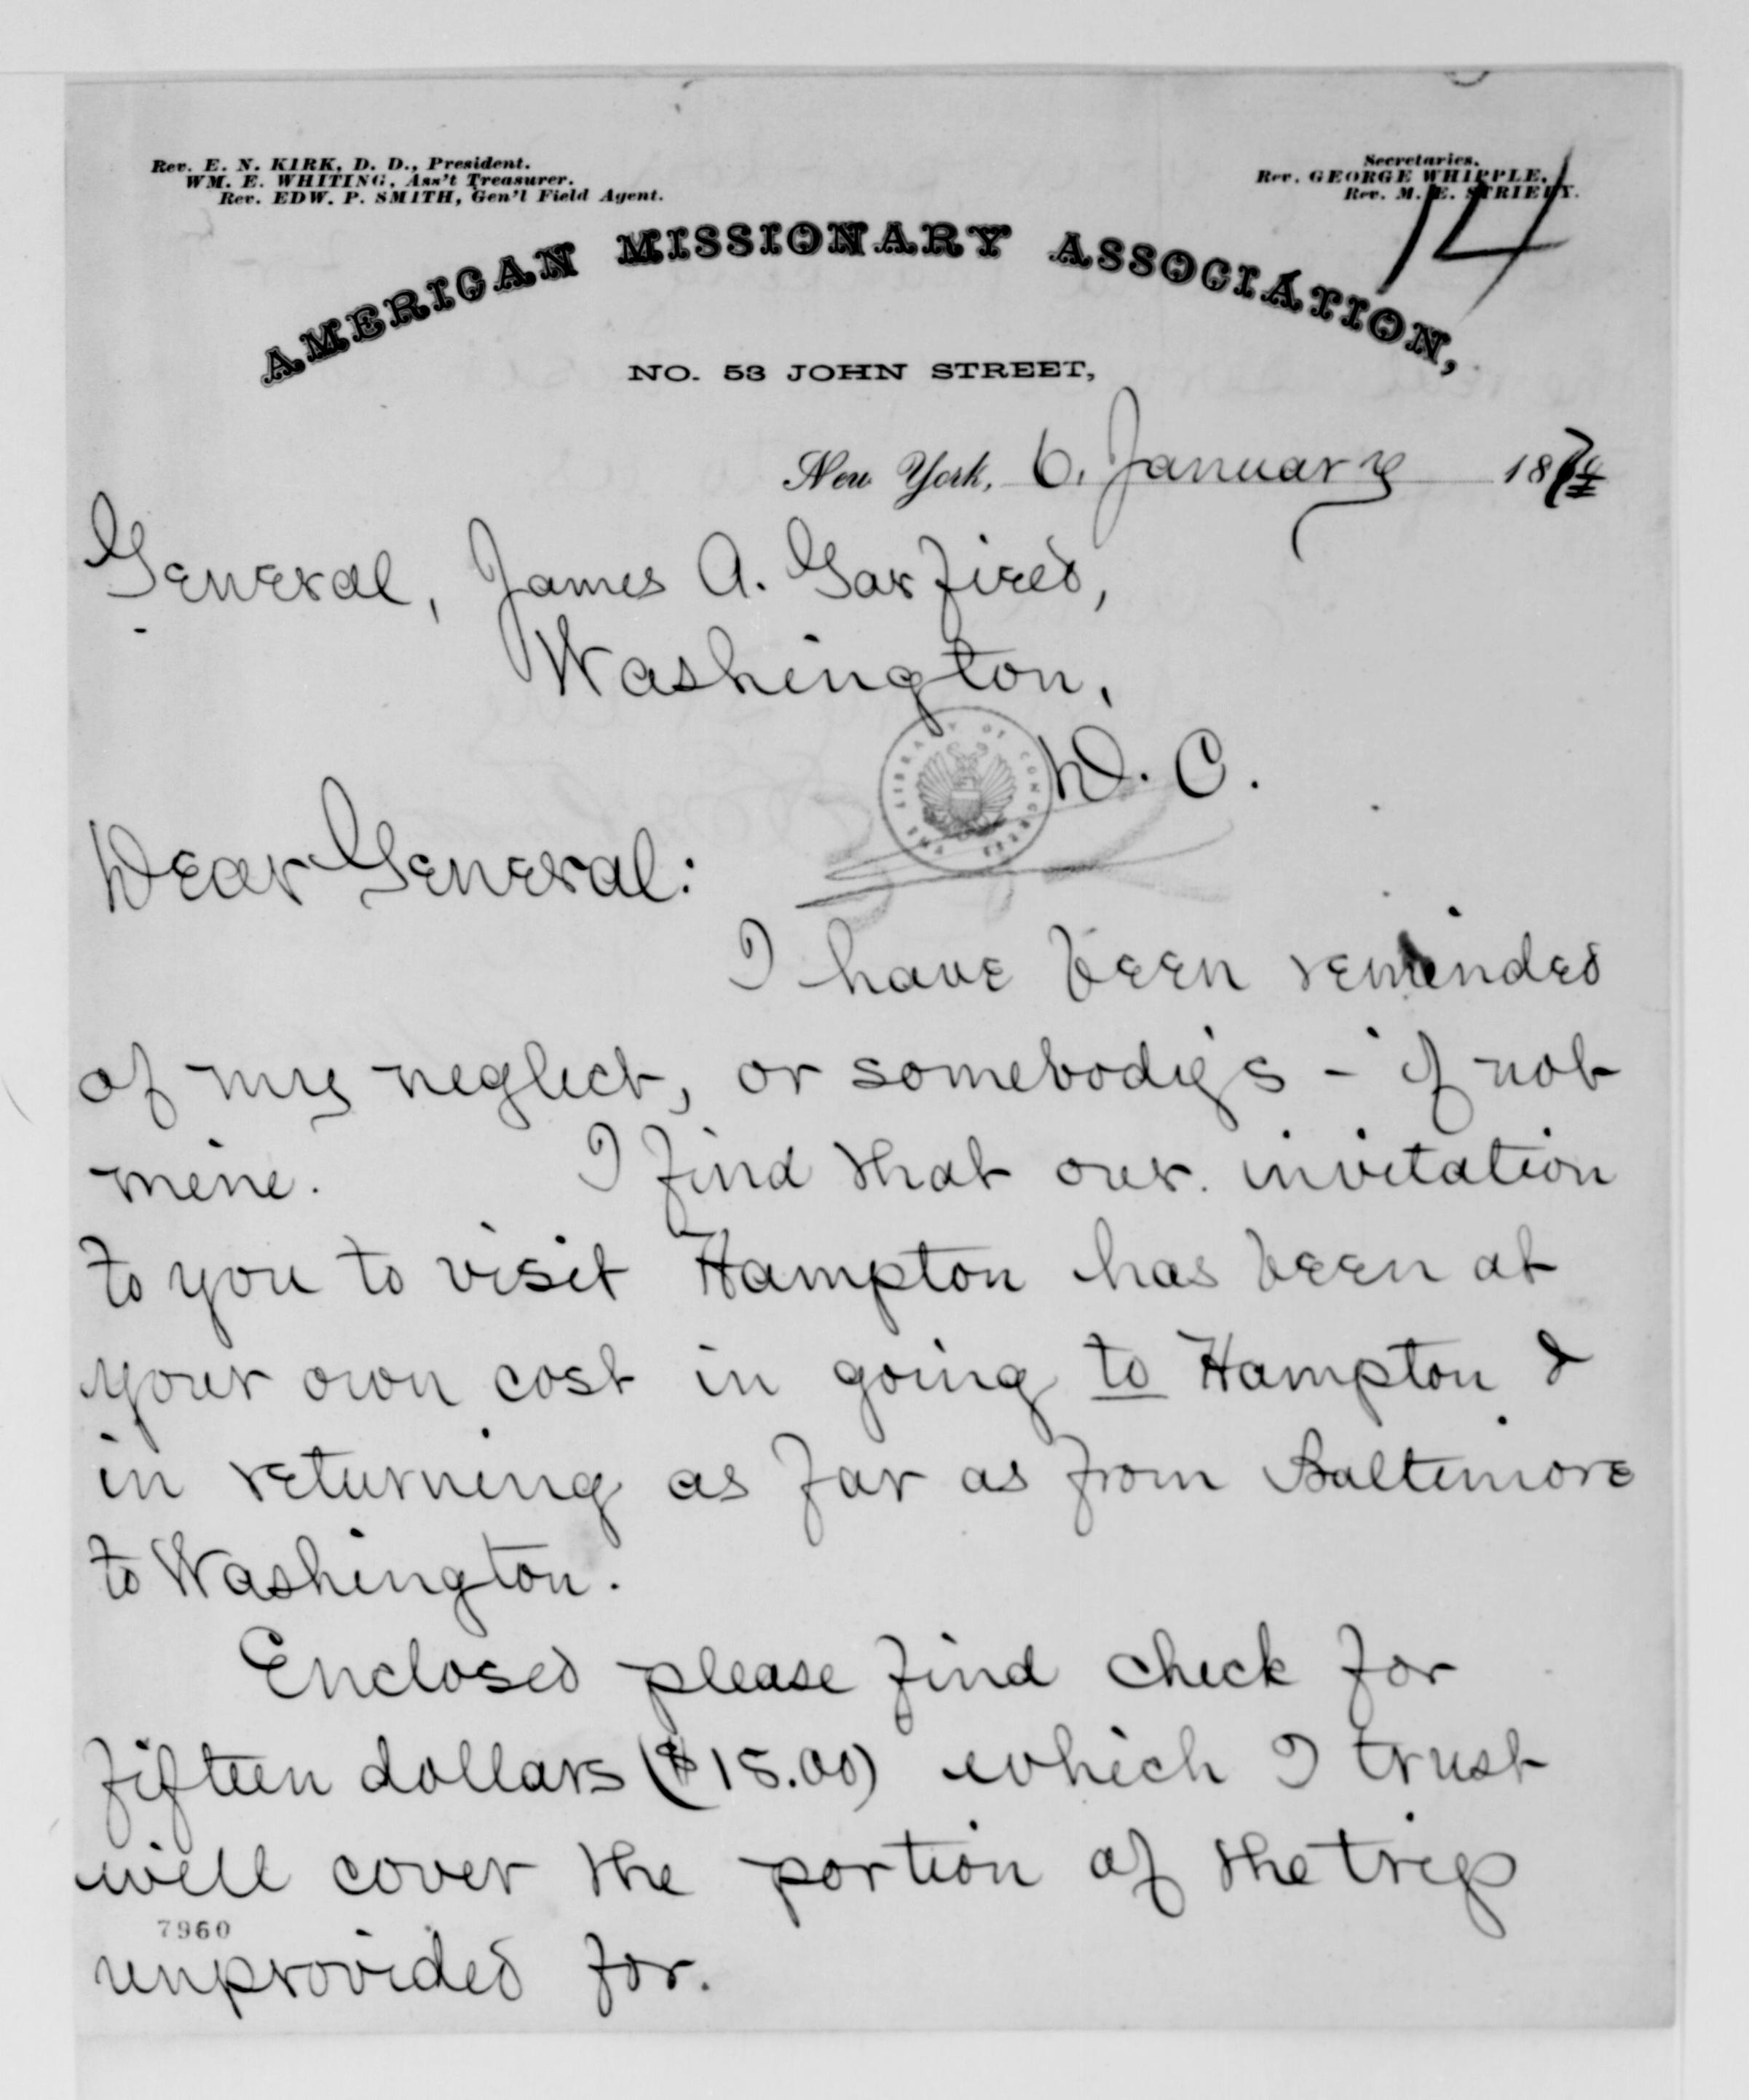 Rev. E. N. KIRK, D. D., President.
WM. E. WHITING, Ass't Treasurer.
Rev. EDW. P. SMITH, Gen'l Field Agent.
Secretaries,
Rev. GEORGE WHIPPLE,
Rev. M. E. STRIEBY.
14
AMERICAN MISSIONARY ASSOCIATION,
NO. 53 JOHN STREET,
New York, 6. January 1870
General, James A. Garfield,
Washington,
D. C.
THE LIBRARY OF CONGRESS
Dear General:
I have been reminded
of my neglect, or somebody's - if not
mine. I find that our invitation
to you to visit Hampton has been at
your own cost in going to Hampton &
in returning as far as from Baltimore
to Washington.
Enclosed please find check for
fifteen dollars ($15.00) which I trust
will cover the portion of the trip
7960
unprovided for.